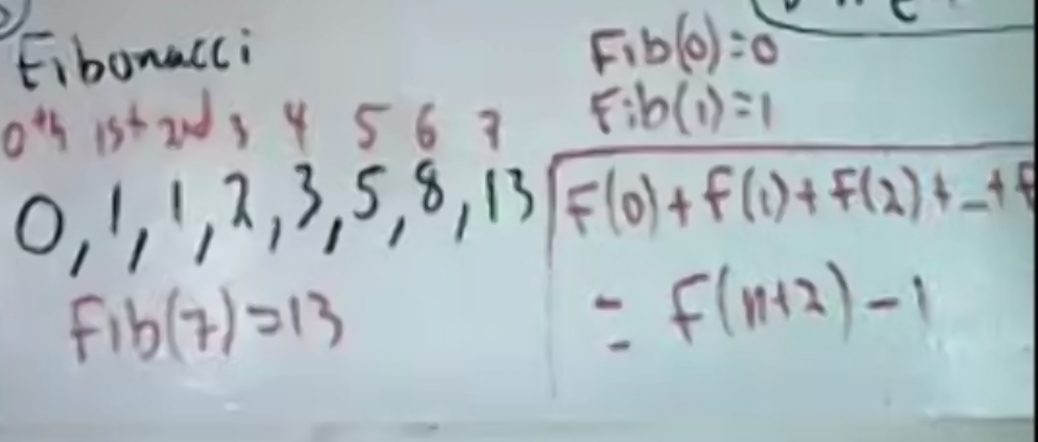 Fibonacci
0th 1st 2nd 3 4 5 6 7
0, 1, 1, 2, 3, 5, 8, 13
Fib(7)=13
Fib(0)=0
Fib(1)=1
F(0)+F(1)+F(2)+...+F
= F(n+2)-1